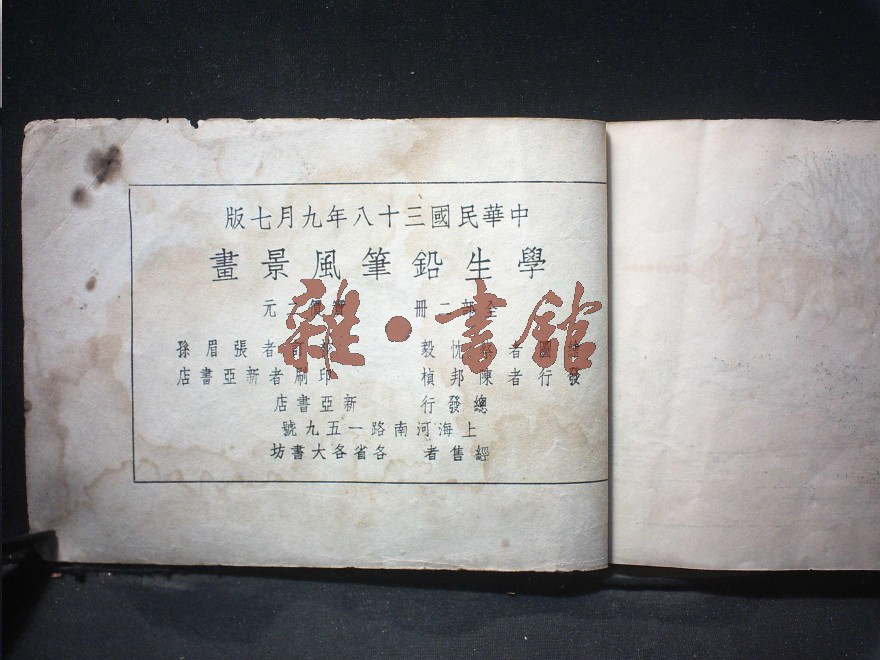 中華民國三十八年九月七版
學生鉛筆風景畫
全部二冊 價元
圖者忱毅 訂者張眉孫
發行者陳邦楨 印刷者新亞書店
總發行 新亞書店
上海河南路一五九號
經售者 各省各大書坊
雜·書館